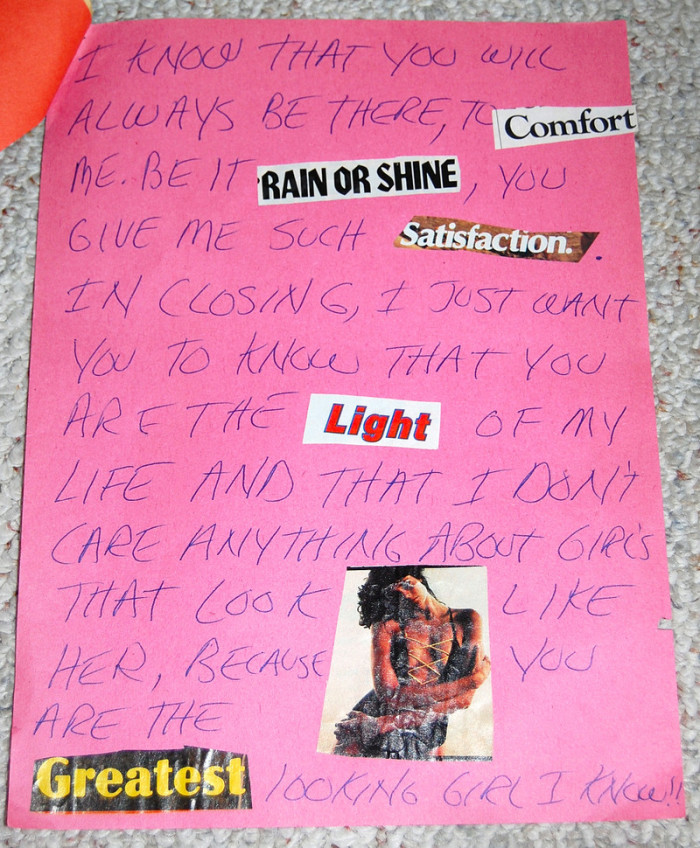 I KNOW THAT YOU WILL
ALWAYS BE THERE, TO Comfort
ME. BE IT RAIN OR SHINE, YOU
GIVE ME SUCH Satisfaction. .
IN CLOSING, I JUST WANT
YOU TO KNOW THAT YOU
ARE THE Light OF MY
LIFE AND THAT I DON'T
CARE ANYTHING ABOUT GIRL'S
THAT LOOK LIKE
HER, BECAUSE YOU
ARE THE
Greatest LOOKING GIRL I KNOW!!